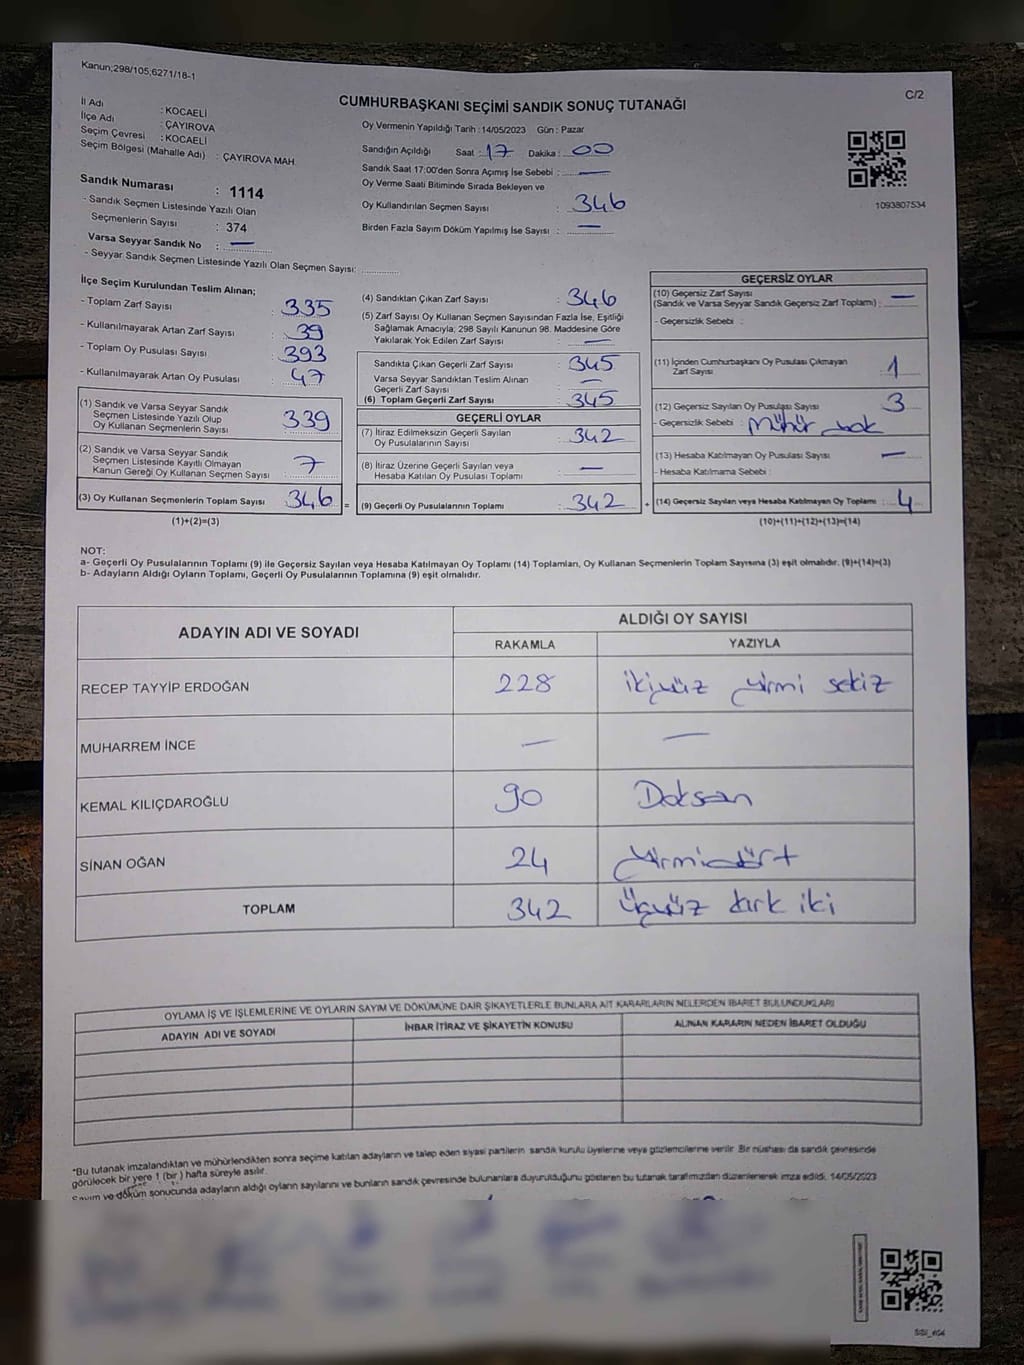 Kanun;298/105;6271/18-1
C/2
CUMHURBAŞKANI SEÇİMİ SANDIK SONUÇ TUTANAĞI
İl Adı : KOCAELİ
İlçe Adı : ÇAYIROVA
Seçim Çevresi : KOCAELİ
Seçim Bölgesi (Mahalle Adı) : ÇAYIROVA MAH.
Sandık Numarası : 1114
- Sandık Seçmen Listesinde Yazılı Olan
Seçmenlerin Sayısı : 374
Varsa Seyyar Sandık No : —
- Seyyar Sandık Seçmen Listesinde Yazılı Olan Seçmen Sayısı:
Oy Vermenin Yapıldığı Tarih : 14/05/2023 Gün : Pazar
Sandığın Açıldığı Saat : 17 Dakika : 00
Sandık Saat 17:00'den Sonra Açımış İse Sebebi : —
Oy Verme Saati Bitiminde Sırada Bekleyen ve
Oy Kullandırılan Seçmen Sayısı : 346
Birden Fazla Sayım Döküm Yapılmış İse Sayısı : —
1093807534
İlçe Seçim Kurulundan Teslim Alınan;
- Toplam Zarf Sayısı : 335
- Kullanılmayarak Artan Zarf Sayısı : 39
- Toplam Oy Pusulası Sayısı : 393
- Kullanılmayarak Artan Oy Pusulası : 47
(1) Sandık ve Varsa Seyyar Sandık
Seçmen Listesinde Yazılı Olup
Oy Kullanan Seçmenlerin Sayısı : 339
(2) Sandık ve Varsa Seyyar Sandık
Seçmen Listesinde Kayıtlı Olmayan
Kanun Gereği Oy Kullanan Seçmen Sayısı : 7
(3) Oy Kullanan Seçmenlerin Toplam Sayısı : 346 =
(1)+(2)=(3)
(4) Sandıktan Çıkan Zarf Sayısı : 346
(5) Zarf Sayısı Oy Kullanan Seçmen Sayısından Fazla İse, Eşitliği
Sağlamak Amacıyla; 298 Sayılı Kanunun 98. Maddesine Göre
Yakılarak Yok Edilen Zarf Sayısı : —
Sandıkta Çıkan Geçerli Zarf Sayısı : 345
Varsa Seyyar Sandıktan Teslim Alınan
Geçerli Zarf Sayısı : —
(6) Toplam Geçerli Zarf Sayısı : 345
GEÇERLİ OYLAR
(7) İtiraz Edilmeksizin Geçerli Sayılan
Oy Pusulalarının Sayısı : 342
(8) İtiraz Üzerine Geçerli Sayılan veya
Hesaba Katılan Oy Pusulası Toplamı : —
(9) Geçerli Oy Pusulalarının Toplamı : 342 +
GEÇERSİZ OYLAR
(10) Geçersiz Zarf Sayısı
(Sandık ve Varsa Seyyar Sandık Geçersiz Zarf Toplamı) : —
- Geçersizlik Sebebi :
(11) İçinden Cumhurbaşkanı Oy Pusulası Çıkmayan
Zarf Sayısı : 1
(12) Geçersiz Sayılan Oy Pusulası Sayısı : 3
- Geçersizlik Sebebi : Mühür yok
(13) Hesaba Katılmayan Oy Pusulası Sayısı : —
- Hesaba Katılmama Sebebi :
(14) Geçersiz Sayılan veya Hesaba Katılmayan Oy Toplamı : 4
(10)+(11)+(12)+(13)=(14)
NOT:
a- Geçerli Oy Pusulalarının Toplamı (9) ile Geçersiz Sayılan veya Hesaba Katılmayan Oy Toplamı (14) Toplamları, Oy Kullanan Seçmenlerin Toplam Sayısına (3) eşit olmalıdır. (9)+(14)=(3)
b- Adayların Aldığı Oyların Toplamı, Geçerli Oy Pusulalarının Toplamına (9) eşit olmalıdır.
ADAYIN ADI VE SOYADI
ALDIĞI OY SAYISI
RAKAMLA YAZIYLA
RECEP TAYYİP ERDOĞAN 228 ikiyüz yirmi sekiz
MUHARREM İNCE — —
KEMAL KILIÇDAROĞLU 90 Doksan
SİNAN OĞAN 24 yirmidört
TOPLAM 342 Üçyüz kırk iki
OYLAMA İŞ VE İŞLEMLERİNE VE OYLARIN SAYIM VE DÖKÜMÜNE DAİR ŞİKAYETLERLE BUNLARA AİT KARARLARIN NELERDEN İBARET BULUNDUKLARI
ADAYIN ADI VE SOYADI İHBAR İTİRAZ VE ŞİKAYETİN KONUSU ALINAN KARARIN NEDEN İBARET OLDUĞU
*Bu tutanak imzalandıktan ve mühürlendikten sonra seçime katılan adayların ve talep eden siyasi partilerin sandık kurulu üyelerine veya gözlemcilerine verilir. Bir nüshası da sandık çevresinde
görülecek bir yere 1 (bir) hafta süreyle asılır.
Sayım ve döküm sonucunda adayların aldığı oyların sayılarını ve bunların sandık çevresinde bulunanlara duyurulduğunu gösteren bu tutanak tarafımızdan düzenlenerek imza edildi. 14/05/2023